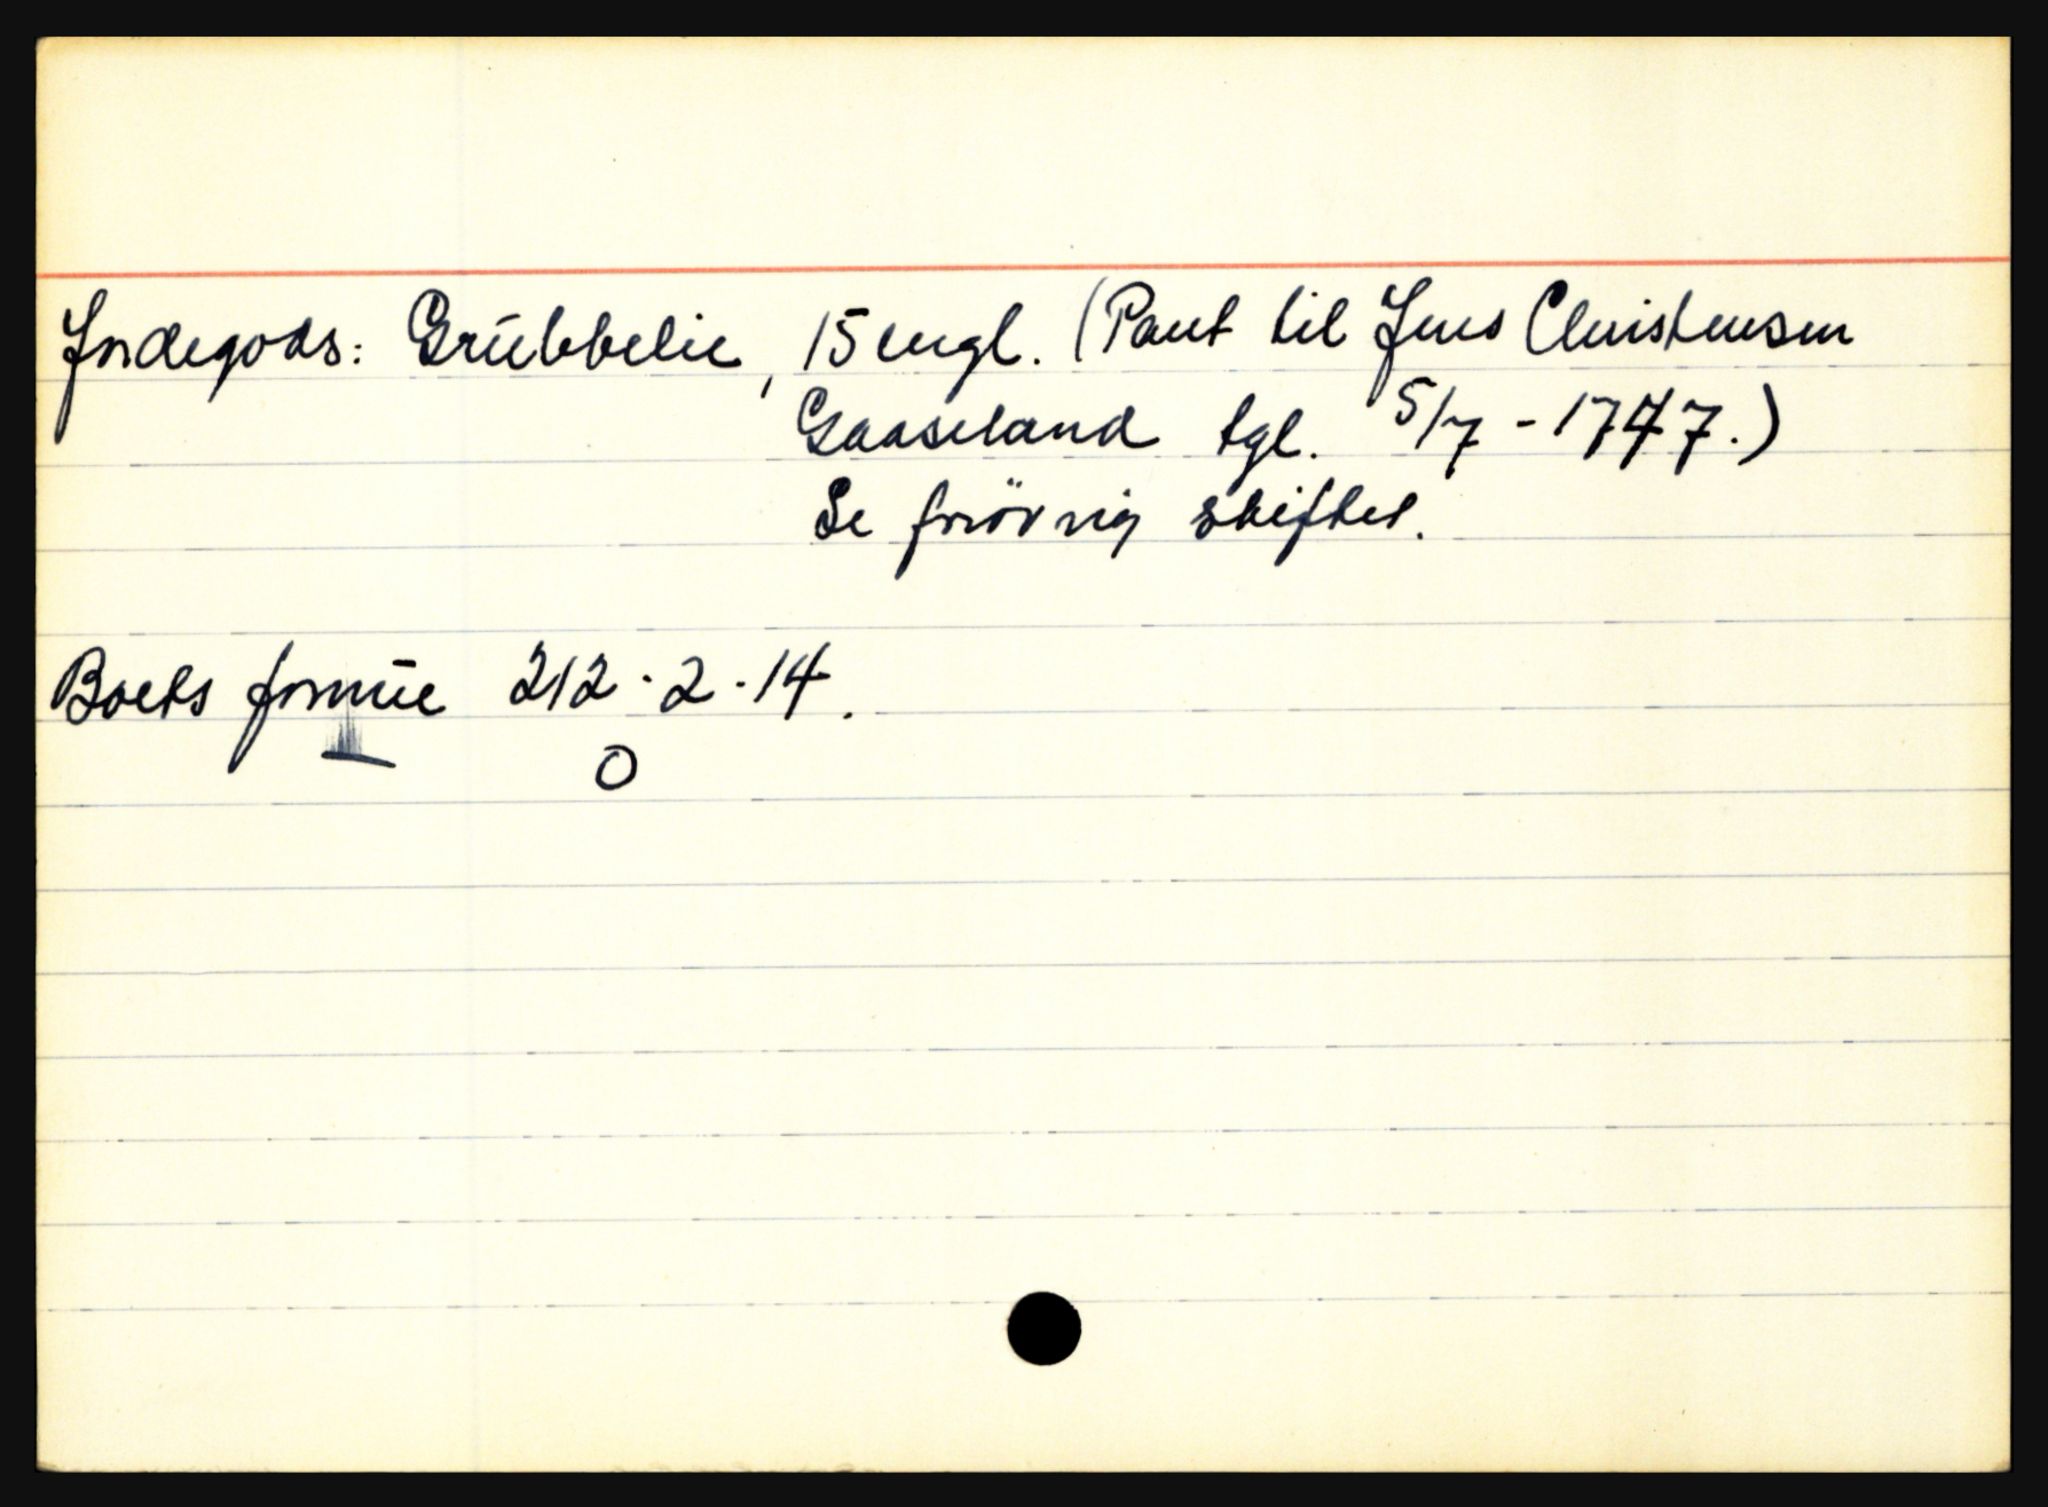 Jordegods: Grubbelie, 15 engl. (Pant til Jens Christensen
Gaaseland tgl. 5/7 - 1747.)
Se forövrig skiftet.
Boets formue 212 . 2 . 14.
0